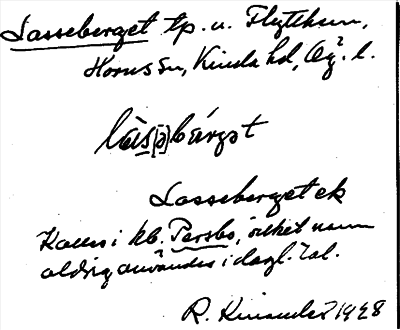 Lasseberget tp. u. Flytthem,
Horns sn, Kinda hd, Ög. l.
làs[ə]bárgət
Lasseberget ek
Kallas i kb. Persbo, vilket namn
aldrig användes i dagl. tal.
R. 1928